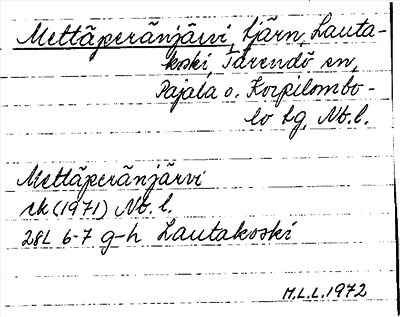 Mettäperänjärvi, tjärn, Lauta-
koski, Tärendö sn,
Pajala o. Korpilombo-
lo tg, Nb.l.
Mettäperänjärvi
rk (1971) Nb. l.
28L 6-7 g-h Lautakoski
M.L.L. 1972